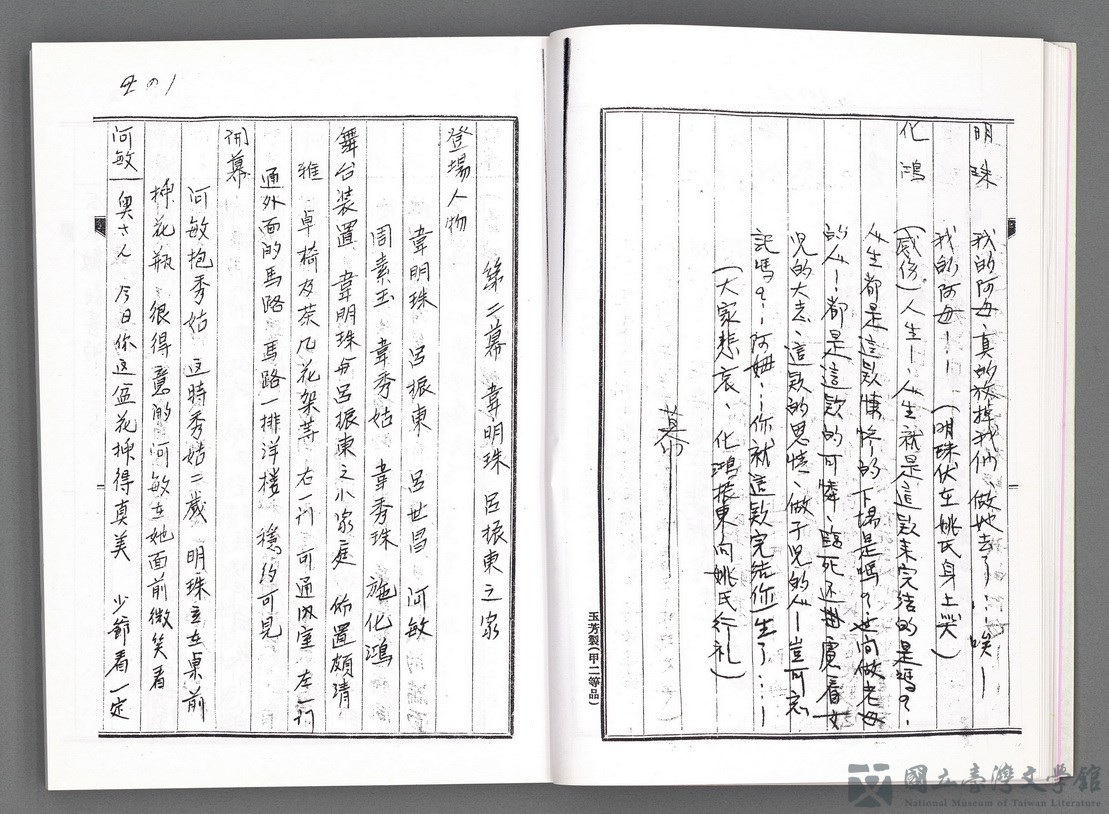 明珠 我的阿母、真的放掉我們、做她去了…唉—
我的阿母！… (明珠伏在姚氏身上哭)
化鴻 (感傷) 人生！、人生就是這款來完結的是嗎？、
人生都是這款悽慘的下場是嗎？世間做老母
的人！都是這款的可憐、臨死還掛慮着女
兒的大志、這款的恩情、做子兒的人！豈可忘
記嗎？…阿姆…你就這款完結你一生了…！
(大家悲哀、化鴻振東向姚氏行礼)
幕
玉芳製(甲二等品)
四の1
第二幕 韋明珠 呂振東之家
登場人物
韋明珠 呂振東 呂世昌 阿敏
周素玉 韋秀姑 韋秀珠 施化鴻
舞台装置 韋明珠与呂振東之小家庭 佈置頗清
雅 卓椅及茶几花架等 右一门 可通臥室 左一门
通外面的馬路 馬路一排洋楼 穩約可見
開幕
阿敏抱秀姑 这時秀姑二歲 明珠立在桌前
挿花瓶 很得意的 阿敏在她面前微笑看
阿敏—奥さん 今日你这盆花挿得真美 少爺看一定
國立臺灣文學館
National Museum of Taiwan Literature